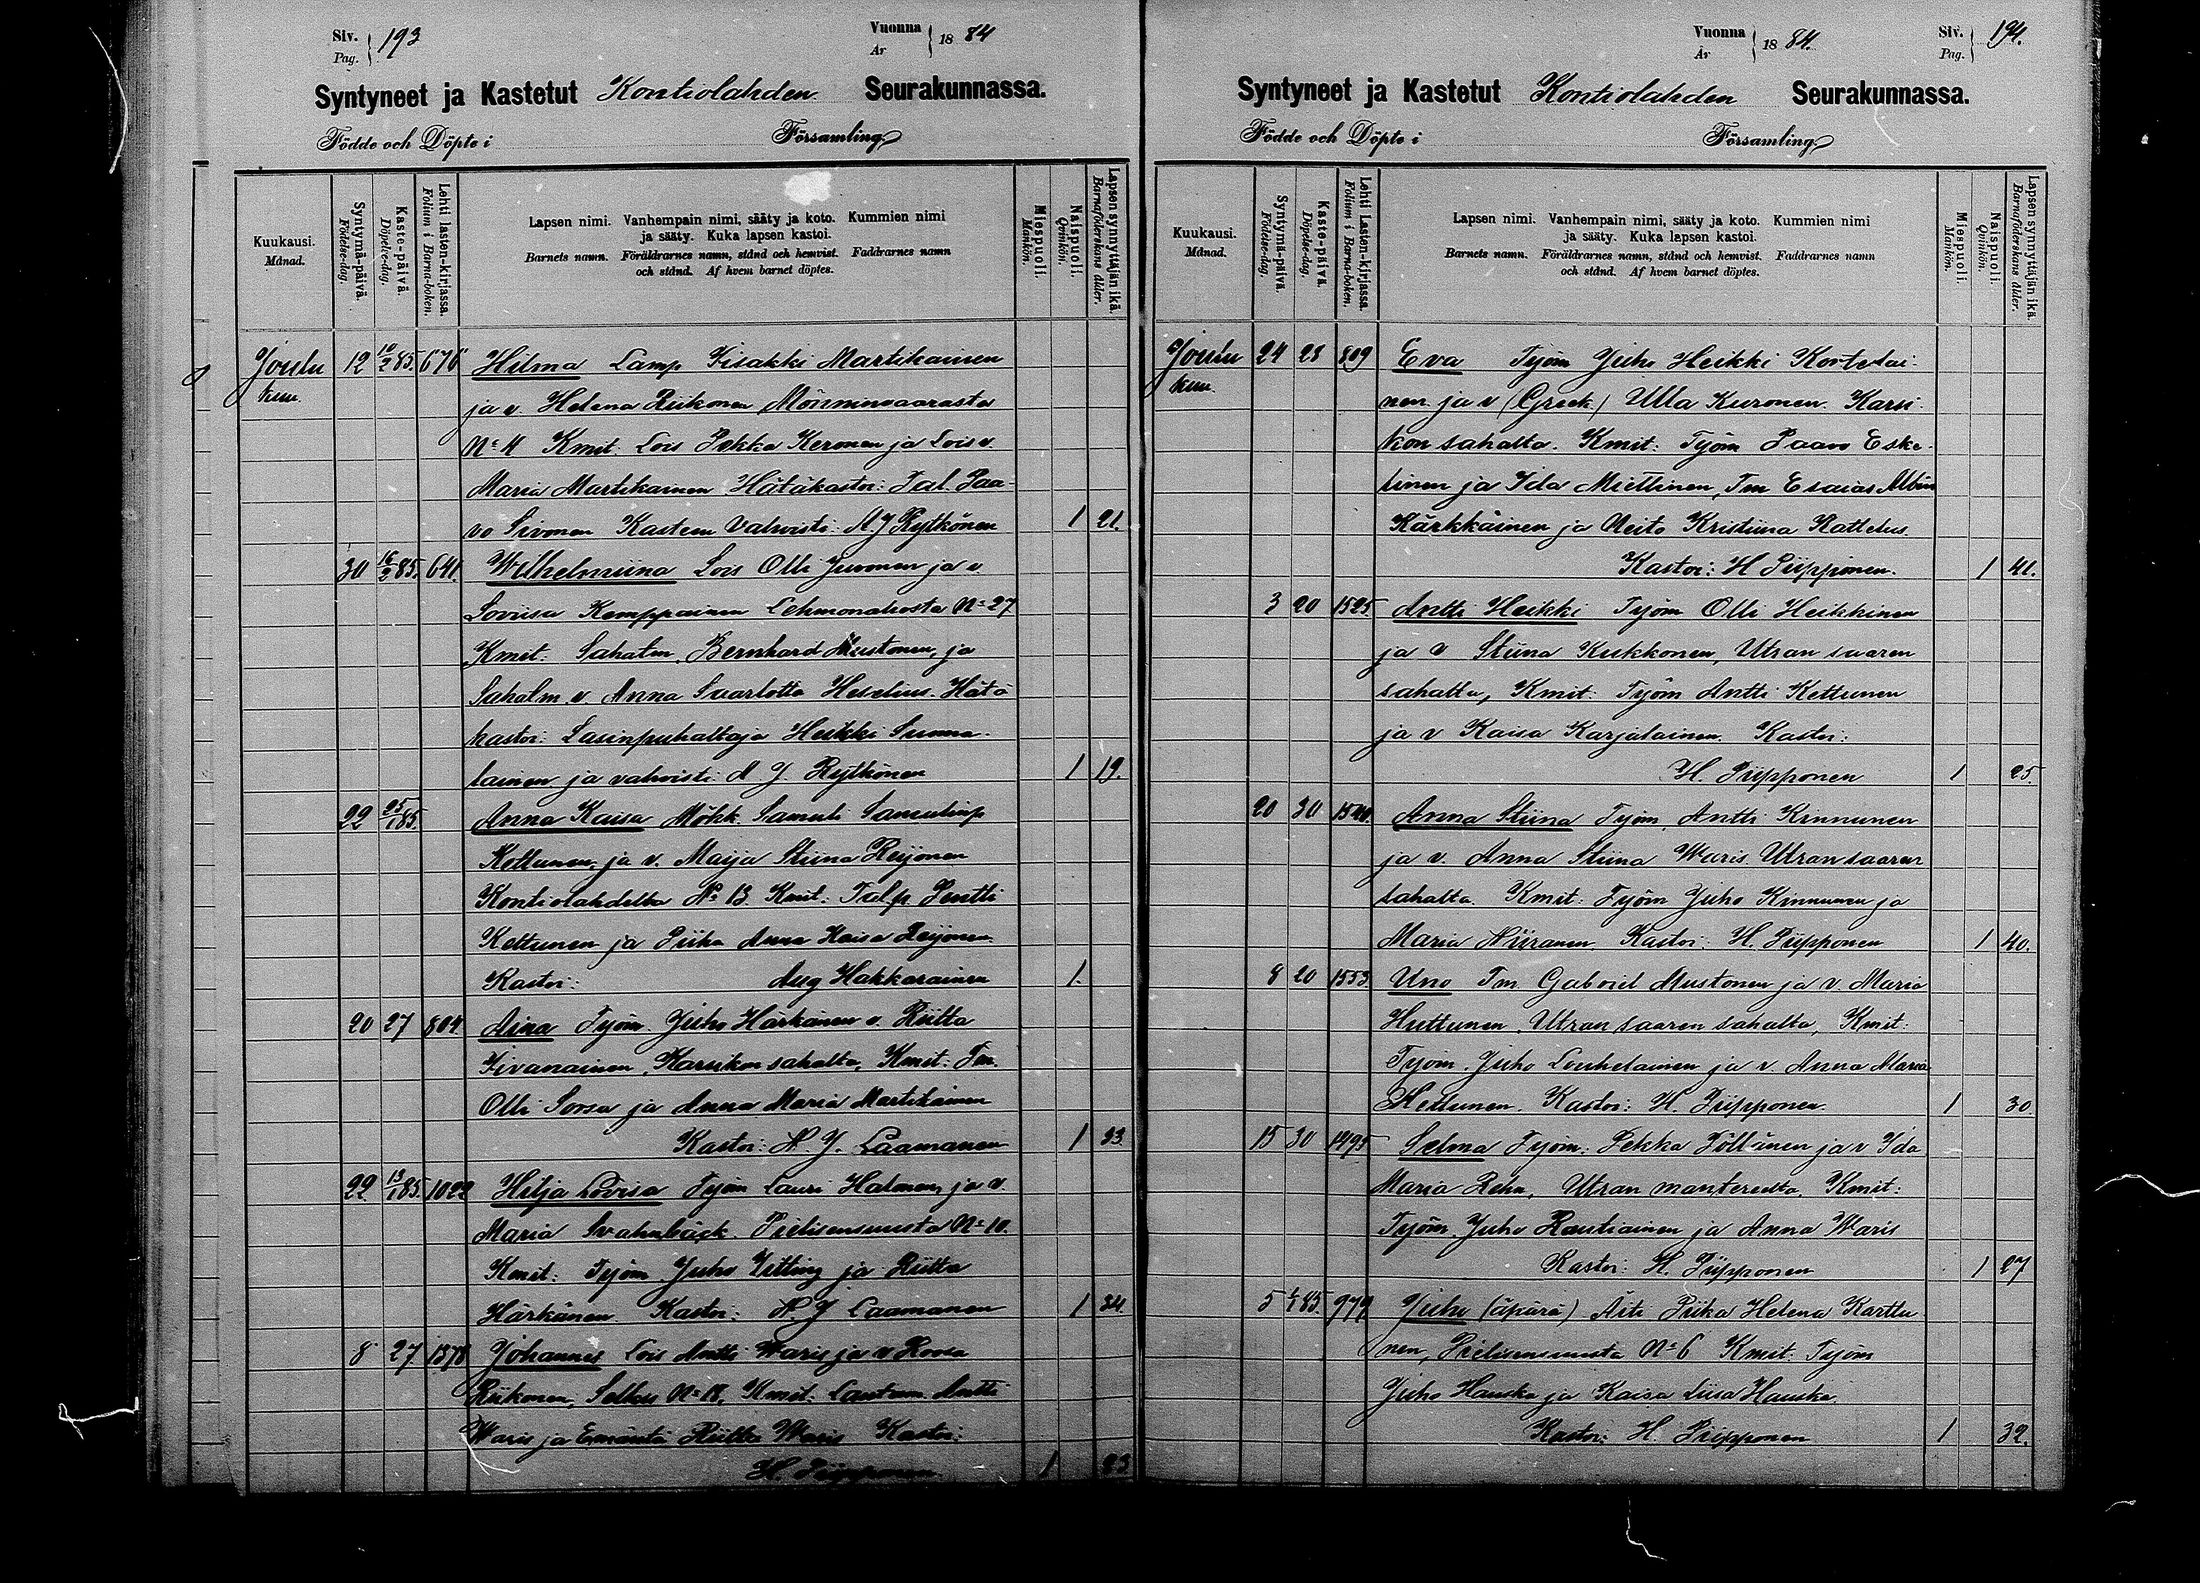 Siv. Pag. 193 Vuonna År 1884
Syntyneet ja Kastetut Kontiolahden Seurakunnassa.
Födde och Döpte i Församling
Kuukausi. Månad.
Syntymä-päivä. Födelse-dag.
Kaste-päivä. Döpelse-dag.
Lehti lasten-kirjassa. Folium i Barna-boken.
Lapsen nimi. Vanhempain nimi, sääty ja koto. Kummien nimi
ja sääty. Kuka lapsen kastoi.
Barnets namn. Föräldrarnes namn, stånd och hemvist. Faddrarnes namn
och stånd. Af hvem barnet döptes.
Miespuoli. Mankön.
Naispuoli. Qvinkön.
Lapsen synnyttäjän ikä. Barnaföderskans ålder.
Joulu 12 10/2 85. 676 Hilma Lamp Iisakki Martikainen
kuu. ja v. Helena Riikonen Mönninvaarasta
No 4 Kmit. Lois Pekka Keronen ja Lois v
Maria Martikainen Hätäkastoi: Tal. Paa-
vo Sivonen Kasteen Vahvisti: A J Rytkönen 1 21.
30 16/2 85. 641 Wilhelmiina Lois Olli Juvonen ja v.
Loviisa Kemppainen Lehmonahosta No 27
Kmit: Sahalm. Bernhard Mustonen, ja
Sahalm. v. Anna Saarlotta Heselius. Hätä
kastoi: Lasinpuhaltaja Heikki Suoma-
lainen ja vahvisti: A J. Rytkönen 1 19.
22 25/1 85. Anna Kaisa Mökk. Samuli Samulinp
Kettunen, ja v. Maija Stiina Reijonen
Kontiolahdelta No 13. Kmit: Talp Pentti
Kettunen ja Piika Anna Kaisa Reijonen
Kastoi: Aug Hakkarainen 1.
20 27 804 Aina Työm. Juho Härkänen v. Riitta
Iivanainen, Karsikon sahalta, Kmit: Tm.
Olli Sorsa ja Anna Maria Martikainen
Kastoi: A. J. Laamanen 1 33.
22 13/1 85. 1022 Hilja Lovisa Työm Lauri Halmen, ja v.
Maria Svahnbäck. Pielisensuusta No 10.
Kmit: Työm Juho Vitting ja Riitta
Härkänen Kastoi: A. J Laamanen 1 34.
8 27 1378 Johannes Lois Antti Waris ja v Roosa
Riikonen, Selkie No 18, Kmit. Lautam. Antti
Waris ja Emäntä Riitta Waris Kastoi:
H. Piipponen 1 23
Vuonna År 1884. Siv. Pag. 194.
Syntyneet ja Kastetut Kontiolahden Seurakunnassa.
Födde och Döpte i Församling
Kuukausi. Månad.
Syntymä-päivä. Födelse-dag.
Kaste-päivä. Döpelse-dag.
Lehti Lasten-kirjassa. Folium i Barna-boken.
Lapsen nimi. Vanhempain nimi, sääty ja koto. Kummien nimi
ja sääty. Kuka lapsen kastoi.
Barnets namn. Föräldrarnes namn, stånd och hemvist. Faddrarnes namn
och stånd. Af hvem barnet döptes.
Miespuoli. Mankön.
Naispuoli. Qvinkön.
Lapsen synnyttäjän ikä. Barnaföderskans ålder.
Joulu 24 28 809 Eva Työm Juho Heikki Kortelai-
kuu. nen ja v (Greek.) Ulla Kuronen. Karsi-
kon sahalta. Kmit: Työm Paavo Eske-
linen ja Ida Miettinen, Tm Esaias Albin
Kärkkäinen ja Neito Kristiina Rattelus.
Kastoi: H Piipponen. 1 41.
3 20 1525. Antti Heikki Työm Olli Heikkinen
ja v Stiina Kukkonen, Utran saaren
sahalta, Kmit: Työm Antti Kettunen
ja v Kaisa Karjalainen. Kastoi:
H. Piipponen 1 25.
20 30 Anna Stiina Työm, Antti Kinnunen
ja v. Anna Stiina Waris. Utran saaren
sahalta. Kmit: Työm Juho Kinnunen ja
Maria Niiranen Kastoi: H. Piipponen 1 40.
8 20 1553. Uno Tm Gabriel Mustonen ja v. Maria
Huttunen, Utran saaren sahalta, Kmit:
Työm. Juho Louhelainen ja v. Anna Maria
Hettunen. Kastoi: H. Piipponen 1 30.
15 30 1495 Selma Työm. Pekka Pöllänen ja v Ida
Maria Rehn, Utran manterelta. Kmit:
Työm. Juho Rautiainen ja Anna Waris
Kastoi: H. Piipponen 1 27
5 1/1 85. 979 Juho (äpärä) Äiti Piika Helena Karttu
nen, Pielisensuusta No 6 Kmit: Työm
Juho Hauska ja Kaisa Liisa Hauska.
Kastoi: H. Piipponen 1 32.